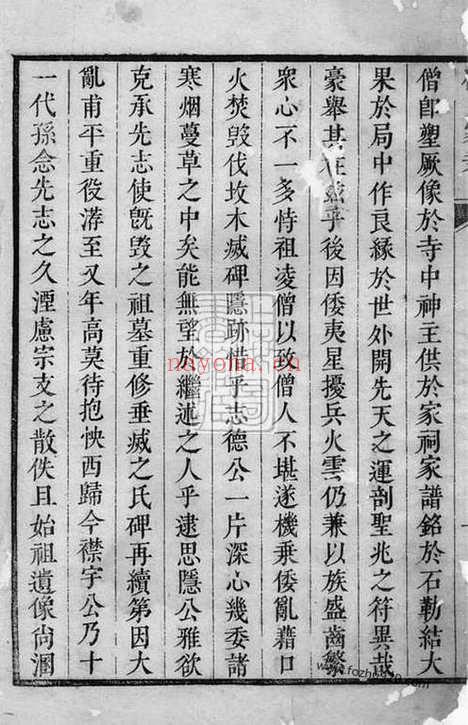 僧卽塑厥像於寺中神主供於家祠家譜銘於石勒結大
果於局中作良緣於世外開先天之運剖聖兆之符異哉
豪舉其在茲乎後因倭夷星擾兵火雲仍兼以族盛齒繁
衆心不一多恃祖凌僧以致僧人不堪遂機乗倭亂藉口
火焚毀伐坟木滅碑隱跡惜乎志德公一片深心幾委諸
寒烟蔓草之中矣能無望於繼述之人乎逮思隱公雅欲
克承先志使旣毀之祖墓重修垂滅之氏碑再續第因大
亂甫平重役洊至又年高莫待抱怏西歸今襟宇公乃十
一代孫念先志之久湮慮宗支之散佚且始祖遺像尙溷
nayona.cn
www.fozhu920.com